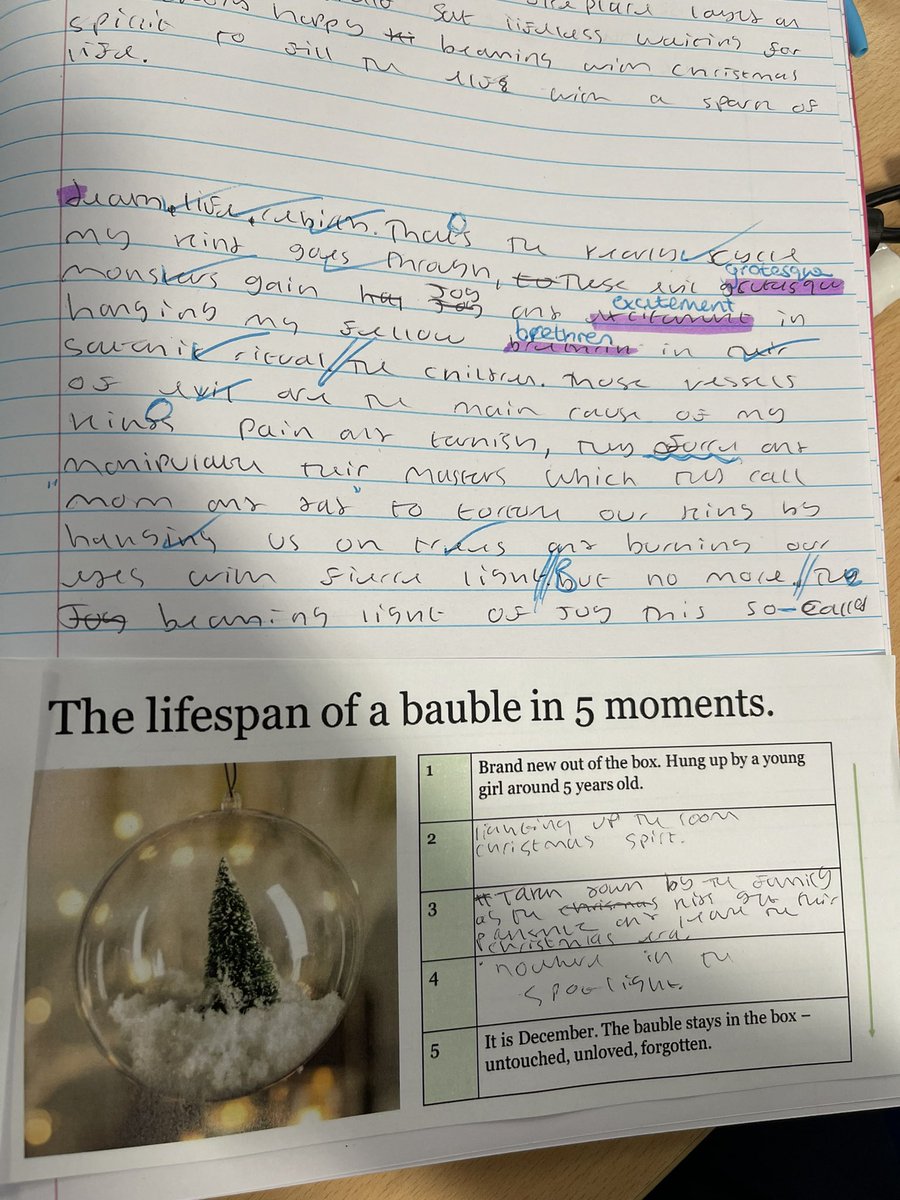 happy beaming with christmas
spirit to fill the with a spark of
life.
sat lifeless waiting for
place layes an
Learn, life, rebirth. That's the yearly cycle
my kind goes through, to These evil grotesque
grotesque
monsters gain Joy and excitement in
excitement
hanging my fellow brethren in their
brethren
satanic ritual // the children. Those vessels
of evil are the main cause of my
kinds pain and tarnish, they force and
manipulate their masters which they call
"mom and dad" to torture our kind by
hanging us on trees and burning our
eyes with fierce light // But no more // The
Joy beaming light of Joy this so-called
The lifespan of a bauble in 5 moments.
1 Brand new out of the box. Hung up by a young
girl around 5 years old.
2 lighting up the room
christmas spirt.
3 Tarn down by the family
as the christmas kids get their
and leave the their
christmias era.
4 nowhere in the
spotlight.
5 It is December. The bauble stays in the box –
untouched, unloved, forgotten.